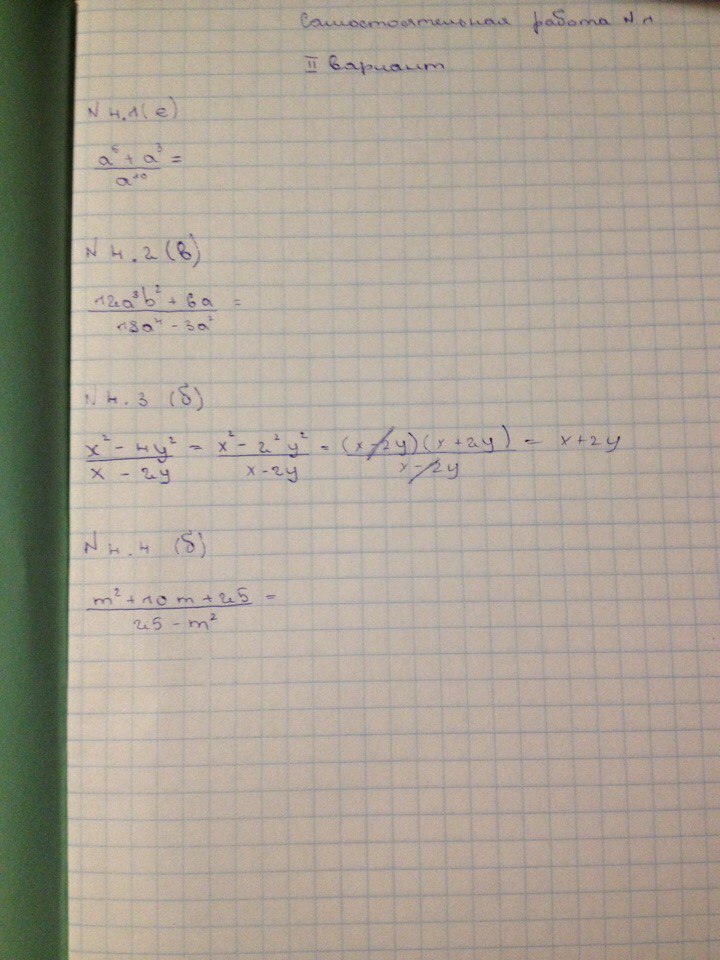 Самостоятельная работа №1
II вариант
№ 4.1(е)
(a⁶ + a³)/a¹⁰ =
№ 4.2 (в)
(12a³b² + 6a)/(18a⁴ - 3a²) =
№ 4.3 (б)
(x² - 4y²)/(x - 2y) = (x² - 2²y²)/(x - 2y) = ((x - 2y)(x + 2y))/(x - 2y) = x + 2y
№ 4.4 (б)
(m² + 10m + 25)/(25 - m²) =